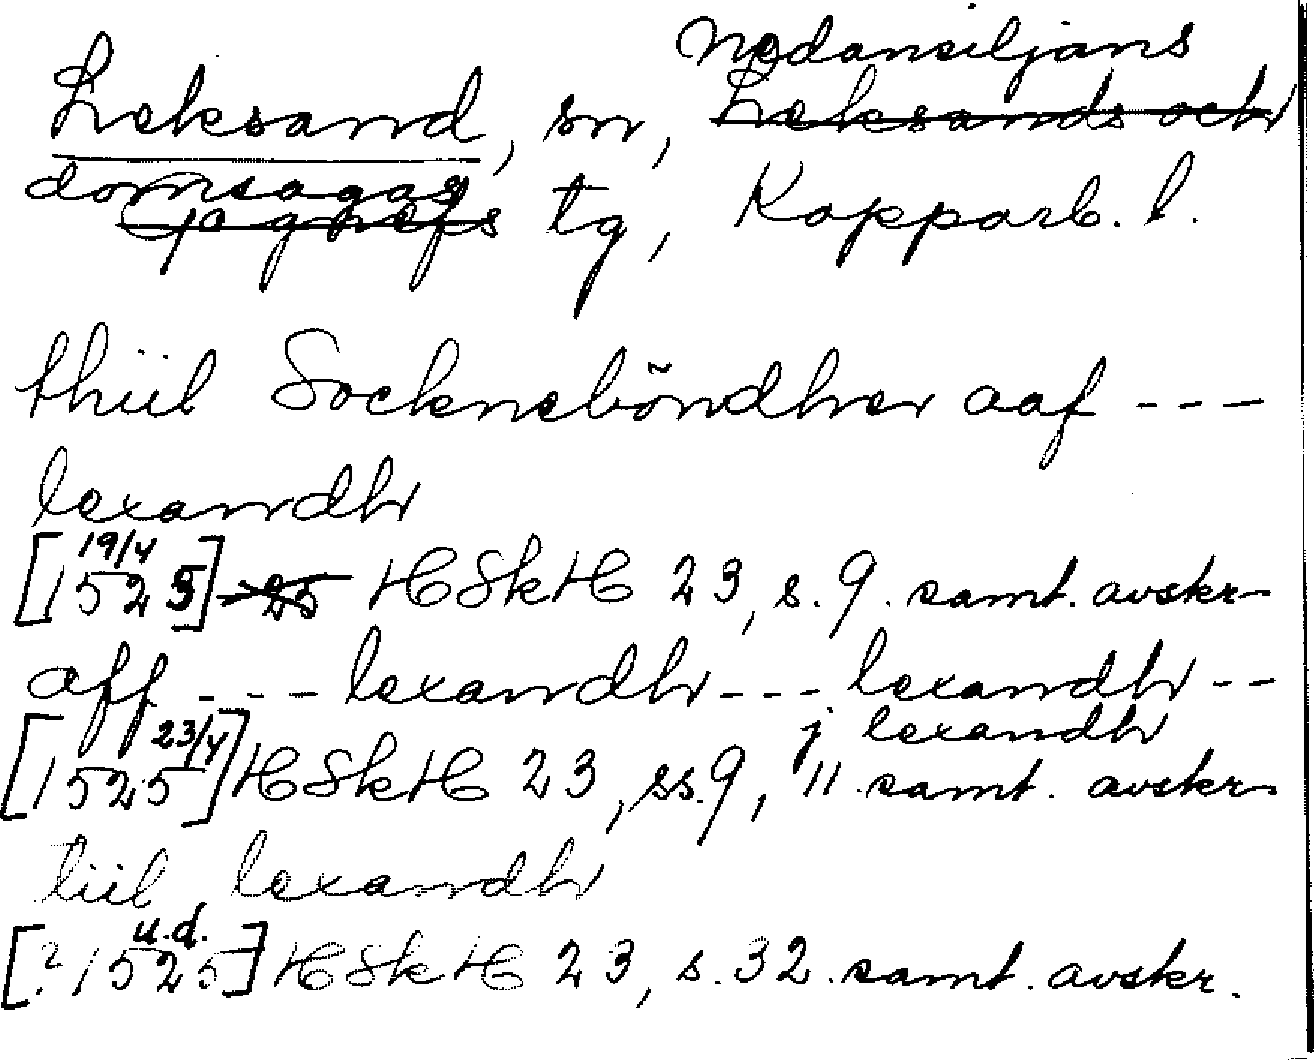 Nedansiljans
Leksand, sn, Leksands och
domsagas
Gagnefs tg, Kopparb. l.
thiil Sockneböndher aaf ---
lexandh
19/4
[1525] 25 HSkH 23, s. 9. samt. avskr.
aff --- lexandh --- lexandh --
j lexandh
23/4
[1525] HSkH 23, ss. 9, 11. samt. avskr.
tiil lexandh
u.d.
[?1525] HSkH 23, s. 32. samt. avskr.